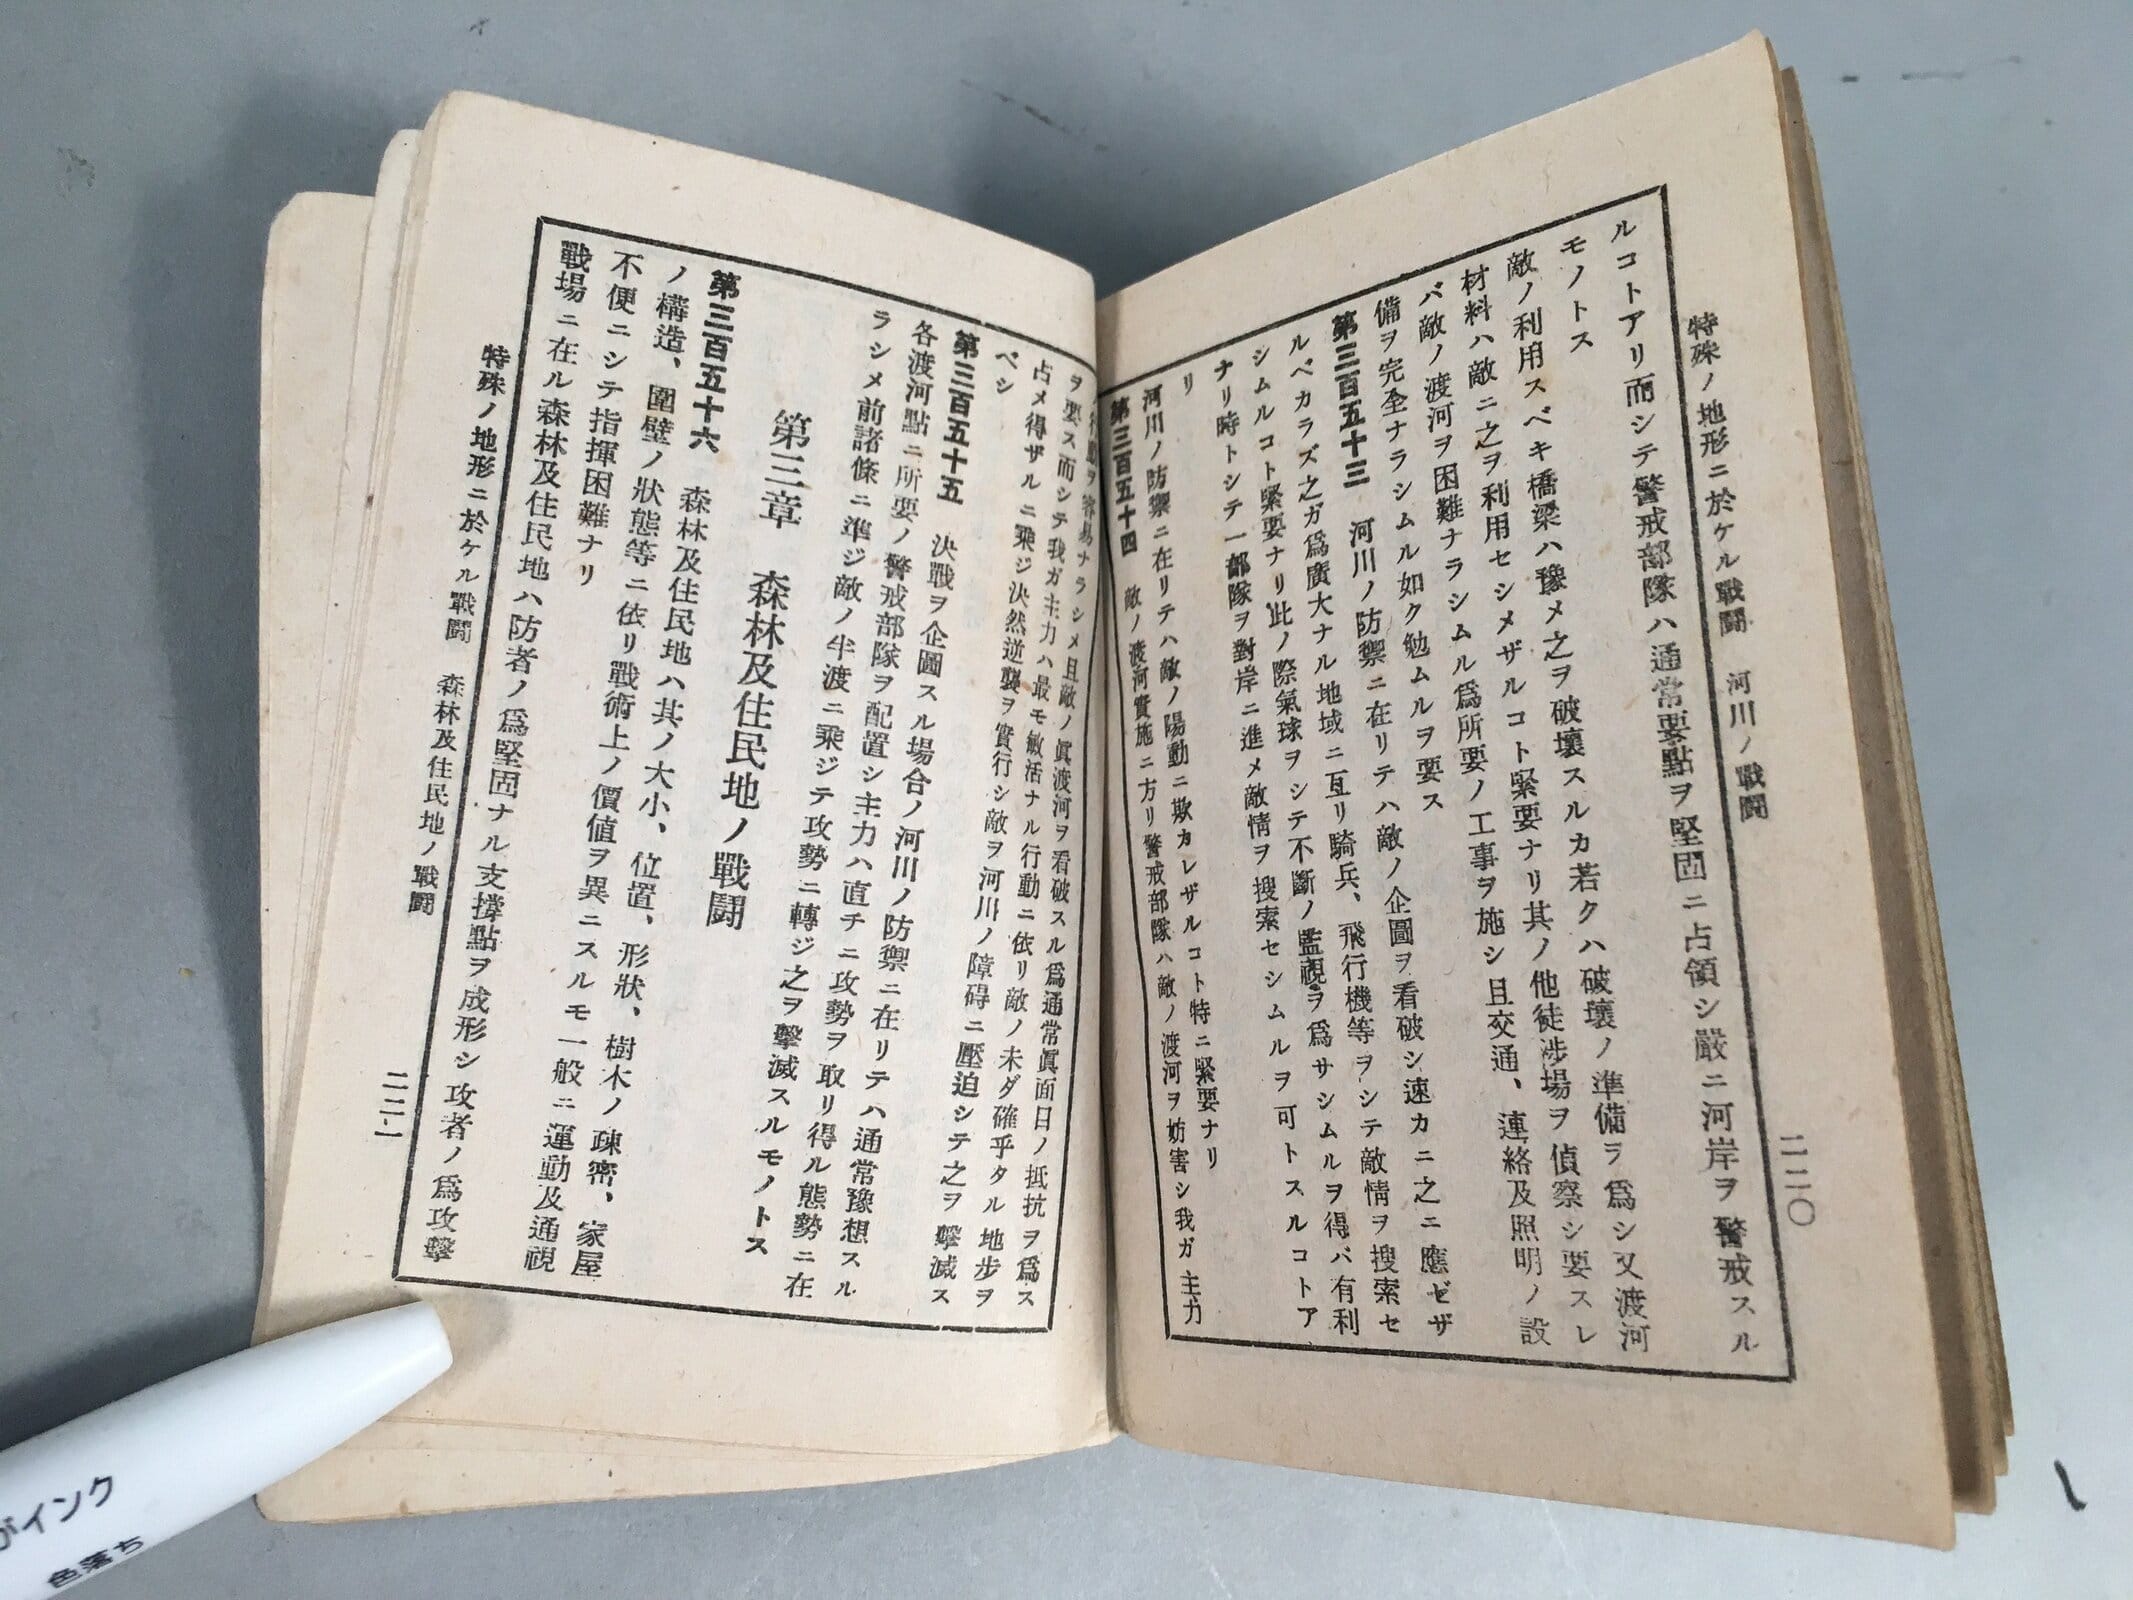 特殊ノ地形ニ於ケル戰鬪 河川ノ戰鬪
二二〇
ルコトアリ而シテ警戒部隊ハ通常要點ヲ堅固ニ占領シ嚴ニ河岸ヲ警戒スル
モノトス
敵ノ利用スベキ橋梁ハ豫メ之ヲ破壞スルカ若クハ破壞ノ準備ヲ爲シ又渡河
材料ハ敵ニ之ヲ利用セシメザルコト緊要ナリ其ノ他徒涉場ヲ偵察シ要スレ
バ敵ノ渡河ヲ困難ナラシムル爲所要ノ工事ヲ施シ且交通、連絡及照明ノ設
備ヲ完全ナラシムル如ク勉ムルヲ要ス
第三百五十三 河川ノ防禦ニ在リテハ敵ノ企圖ヲ看破シ速カニ之ニ應ゼザ
ルベカラズ之ガ爲廣大ナル地域ニ亙リ騎兵、飛行機等ヲシテ敵情ヲ搜索セ
シムルコト緊要ナリ此ノ際氣球ヲシテ不斷ノ監視ヲ爲サシムルヲ得バ有利
ナリ時トシテ一部隊ヲ對岸ニ進メ敵情ヲ搜索セシムルヲ可トスルコトア
リ
河川ノ防禦ニ在リテハ敵ノ陽動ニ欺カレザルコト特ニ緊要ナリ
第三百五十四 敵ノ渡河實施ニ方リ警戒部隊ハ敵ノ渡河ヲ妨害シ我ガ主力
ヲ容易ナラシメ且敵ノ眞渡河ヲ看破スル爲通常眞面目ノ抵抗ヲ爲ス
ヲ要ス而シテ我ガ主力ハ最モ敏活ナル行動ニ依リ敵ノ未ダ確乎タル地步ヲ
占メ得ザルニ乘ジ決然逆襲ヲ實行シ敵ヲ河川ノ障碍ニ壓迫シテ之ヲ擊滅ス
ベシ
第三百五十五 決戰ヲ企圖スル場合ノ河川ノ防禦ニ在リテハ通常豫想スル
各渡河點ニ所要ノ警戒部隊ヲ配置シ主力ハ直チニ攻勢ヲ取リ得ル態勢ニ在
ラシメ前諸條ニ準ジ敵ノ半渡ニ乘ジテ攻勢ニ轉ジ之ヲ擊滅スルモノトス
第三章 森林及住民地ノ戰鬪
第三百五十六 森林及住民地ハ其ノ大小、位置、形狀、樹木ノ疎密、家屋
ノ構造、圍壁ノ狀態等ニ依リ戰術上ノ價値ヲ異ニスルモ一般ニ運動及通視
不便ニシテ指揮困難ナリ
戰場ニ在ル森林及住民地ハ防者ノ爲堅固ナル支撐點ヲ成形シ攻者ノ爲攻擊
特殊ノ地形ニ於ケル戰鬪 森林及住民地ノ戰鬪
二二一
がインク
色落ち